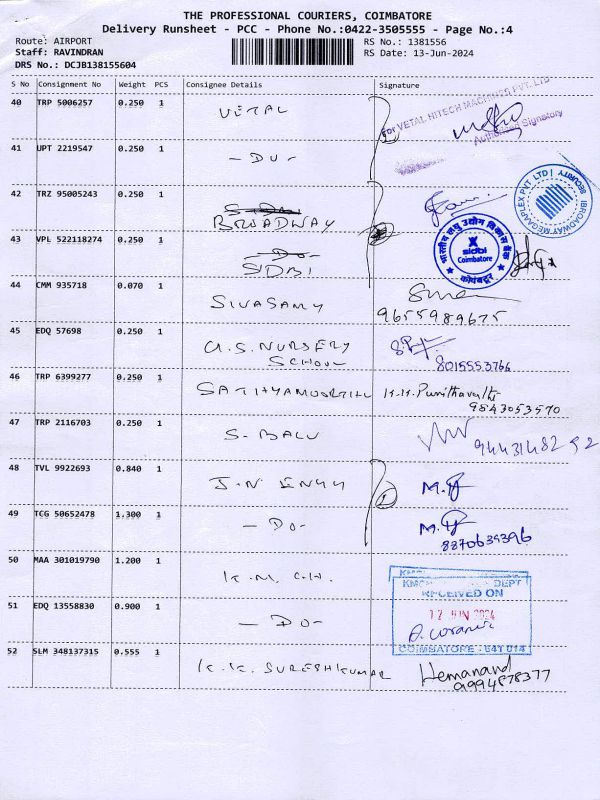 THE PROFESSIONAL COURIERS, COIMBATORE
Delivery Runsheet - PCC - Phone No.:0422-3505555 - Page No.:4
Route: AIRPORT RS No.: 1381556
Staff: RAVINDRAN RS Date: 13-Jun-2024
DRS No.: DCJB138155604
S No Consignment No Weight PCS Consignee Details Signature
40 TRP 5006257 0.250 1 VETAL
For VETAL HITECH MACHINES PVT. LTD
Authorised Signatory
41 UPT 2219547 0.250 1 - DO -
42 TRZ 95005243 0.250 1 BROADWAY
BROADWAY MEGAAPLEX PVT LTD
SECURITY
43 VPL 522118274 0.250 1 SIDBI
भारतीय लघु उद्योग विकास बैंक
sidbi
Coimbatore
कोयंबटूर
44 CMM 935718 0.070 1 SIVASAMY
9655989675
45 EDQ 57698 0.250 1 G.S. NURSERY
SCHOOL
8015553766
46 TRP 6399277 0.250 1 SATHYAMOORTHY K.M. Punithavathi
9843053570
47 TRP 2116703 0.250 1 S. BALU 9443148292
48 TVL 9922693 0.840 1 J.N ENGG
49 TCG 50652478 1.300 1 - DO -
50 MAA 301019790 1.200 1 K.M.C.H.
DEPT
RECEIVED ON
12 JUN 2024
COIMBATORE - 641 014
51 EDQ 13558830 0.900 1 - DO -
52 SLM 348137315 0.555 1 K.K. SURESHKUMAR Hemanand
9994878377